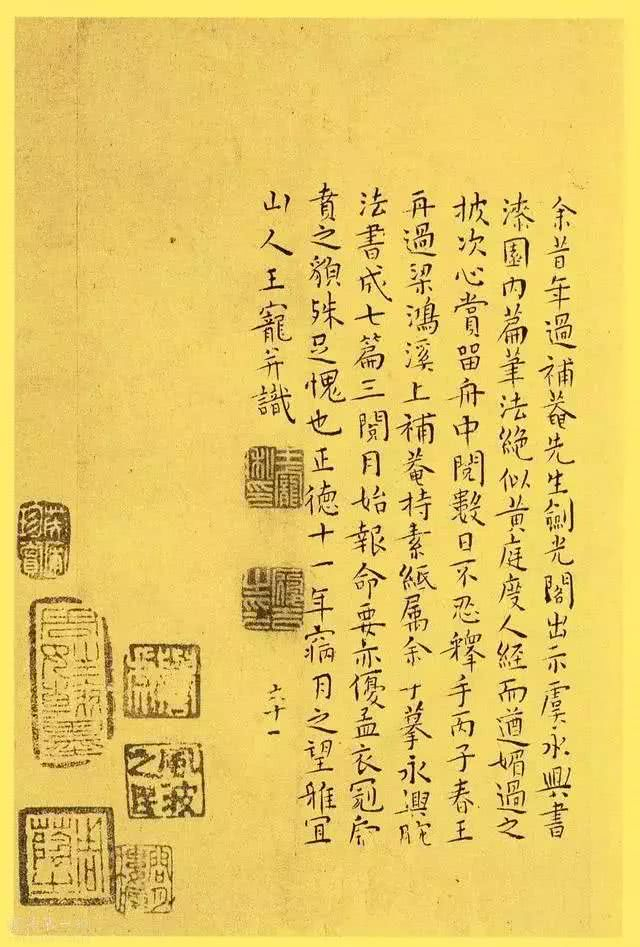 余昔年過補菴先生劍光閣出示虞永興書
漆園内篇筆法絶似黄庭度人經而遒媚過之
披次心賞留舟中閱數日不忍釋手丙子春王
再過梁鴻溪上補菴持素紙属余摹永興腕
法書成七篇三閱月始報命要亦優孟衣冠虎
賁之貌殊足愧也正德十一年窉月之望雅宜
山人王寵并識
六十一
風波之民